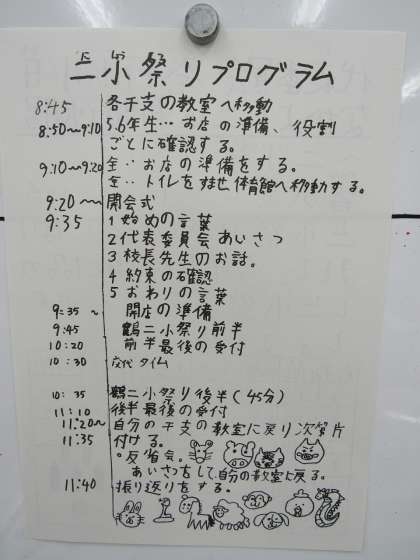 にしょう
二小祭りプログラム
8:45 各干支の教室へ移動
8:50〜9:10 5.6年生…お店の準備、役割
ごとに確認する。
9:10〜9:20 全…お店の準備をする。
全…トイレをすませ体育館へ移動する。
9:20〜 開会式
9:35 1 始めの言葉
2 代表委員会あいさつ
3 校長先生のお話。
4 約束の確認
5 おわりの言葉
9:35〜 開店の準備
9:45 鶴二小祭り前半
10:20 前半最後の受付
10:30 交代タイム
10:35 鶴二小祭り後半(45分)
11:10 後半最後の受付
11:20〜 自分の干支の教室に戻り次第片
11:35 付ける。
。反省会。
あいさつをして、自分の教室に戻る。
11:40 振り返りをする。